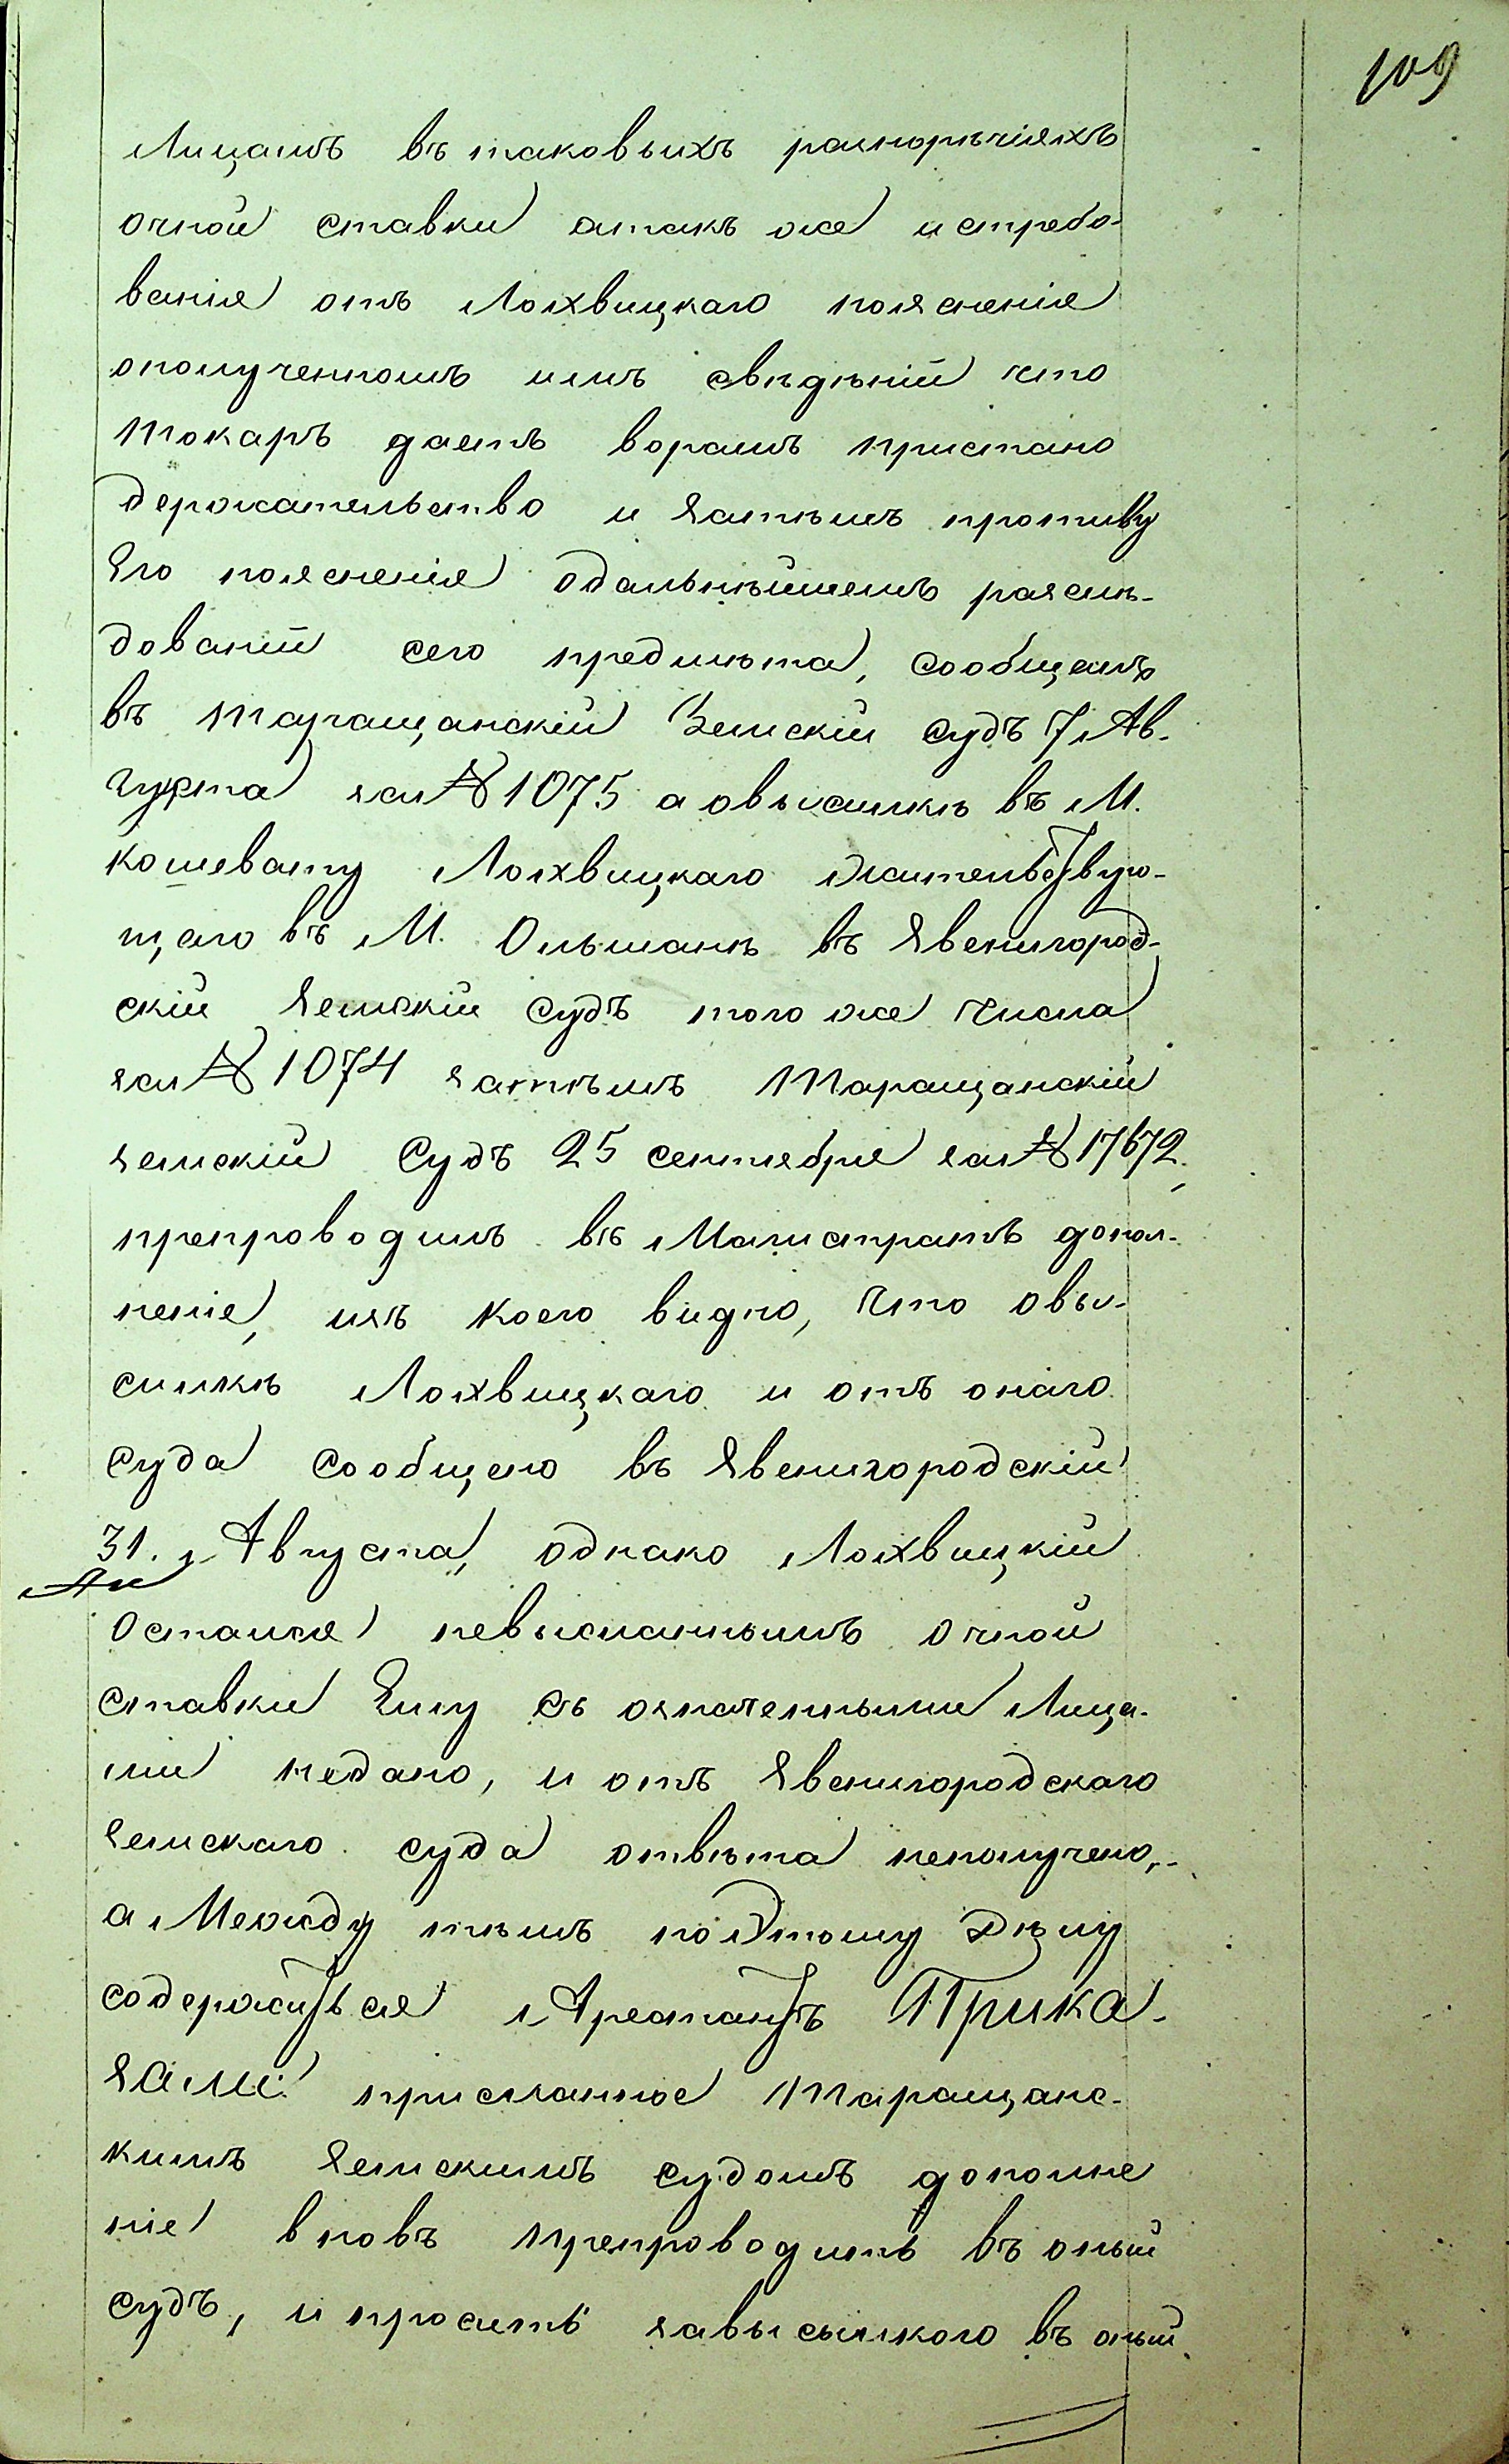 109
Лицамъ въ таковыхъ разнорѣчіяхъ
очной ставки атакъ же истребо-
ванія отъ Лохвицкаго поясненія
ополученномъ имъ свѣдѣній что
Токаръ даетъ ворамъ пристано
держательство и затѣмъ противу
Его поясненія одальнѣйшемъ разслѣ-
дованій сего предмѣта, сообщать
въ Таращанскій Земскій судъ 7 Ав-
густа за № 1075 а овысылкѣ въ М.
Кошевату Лохвицкаго жительствую-
щаго въ М. Ольшанѣ въ Звенигород-
скій Земскій судъ того же числа
за № 1074 затѣмъ Таращанскій
земскій Судъ 25 сентября за № 17672,
препроводилъ въ Магистратъ допол-
неніе, изъ коего видно, что овы-
сылкѣ Лохвицкаго и отъ онаго
суда сообщено въ Звенигородскій
31. Августа, однако Лохвицкій
остался невысланнымъ очной
ставки Ему съ означенными Лица-
ми недано, и отъ Звенигородскаго
земскаго суда отвѣта неполучено,
а Между тѣмъ поЭтому Дѣлу
содержиться Арестантъ Прика-
зали: присланное Таращанс-
кимъ Земскимъ судомъ дополне
ніе вновъ препроводить въ оный
судъ, и проситъ завысылкого въ оный